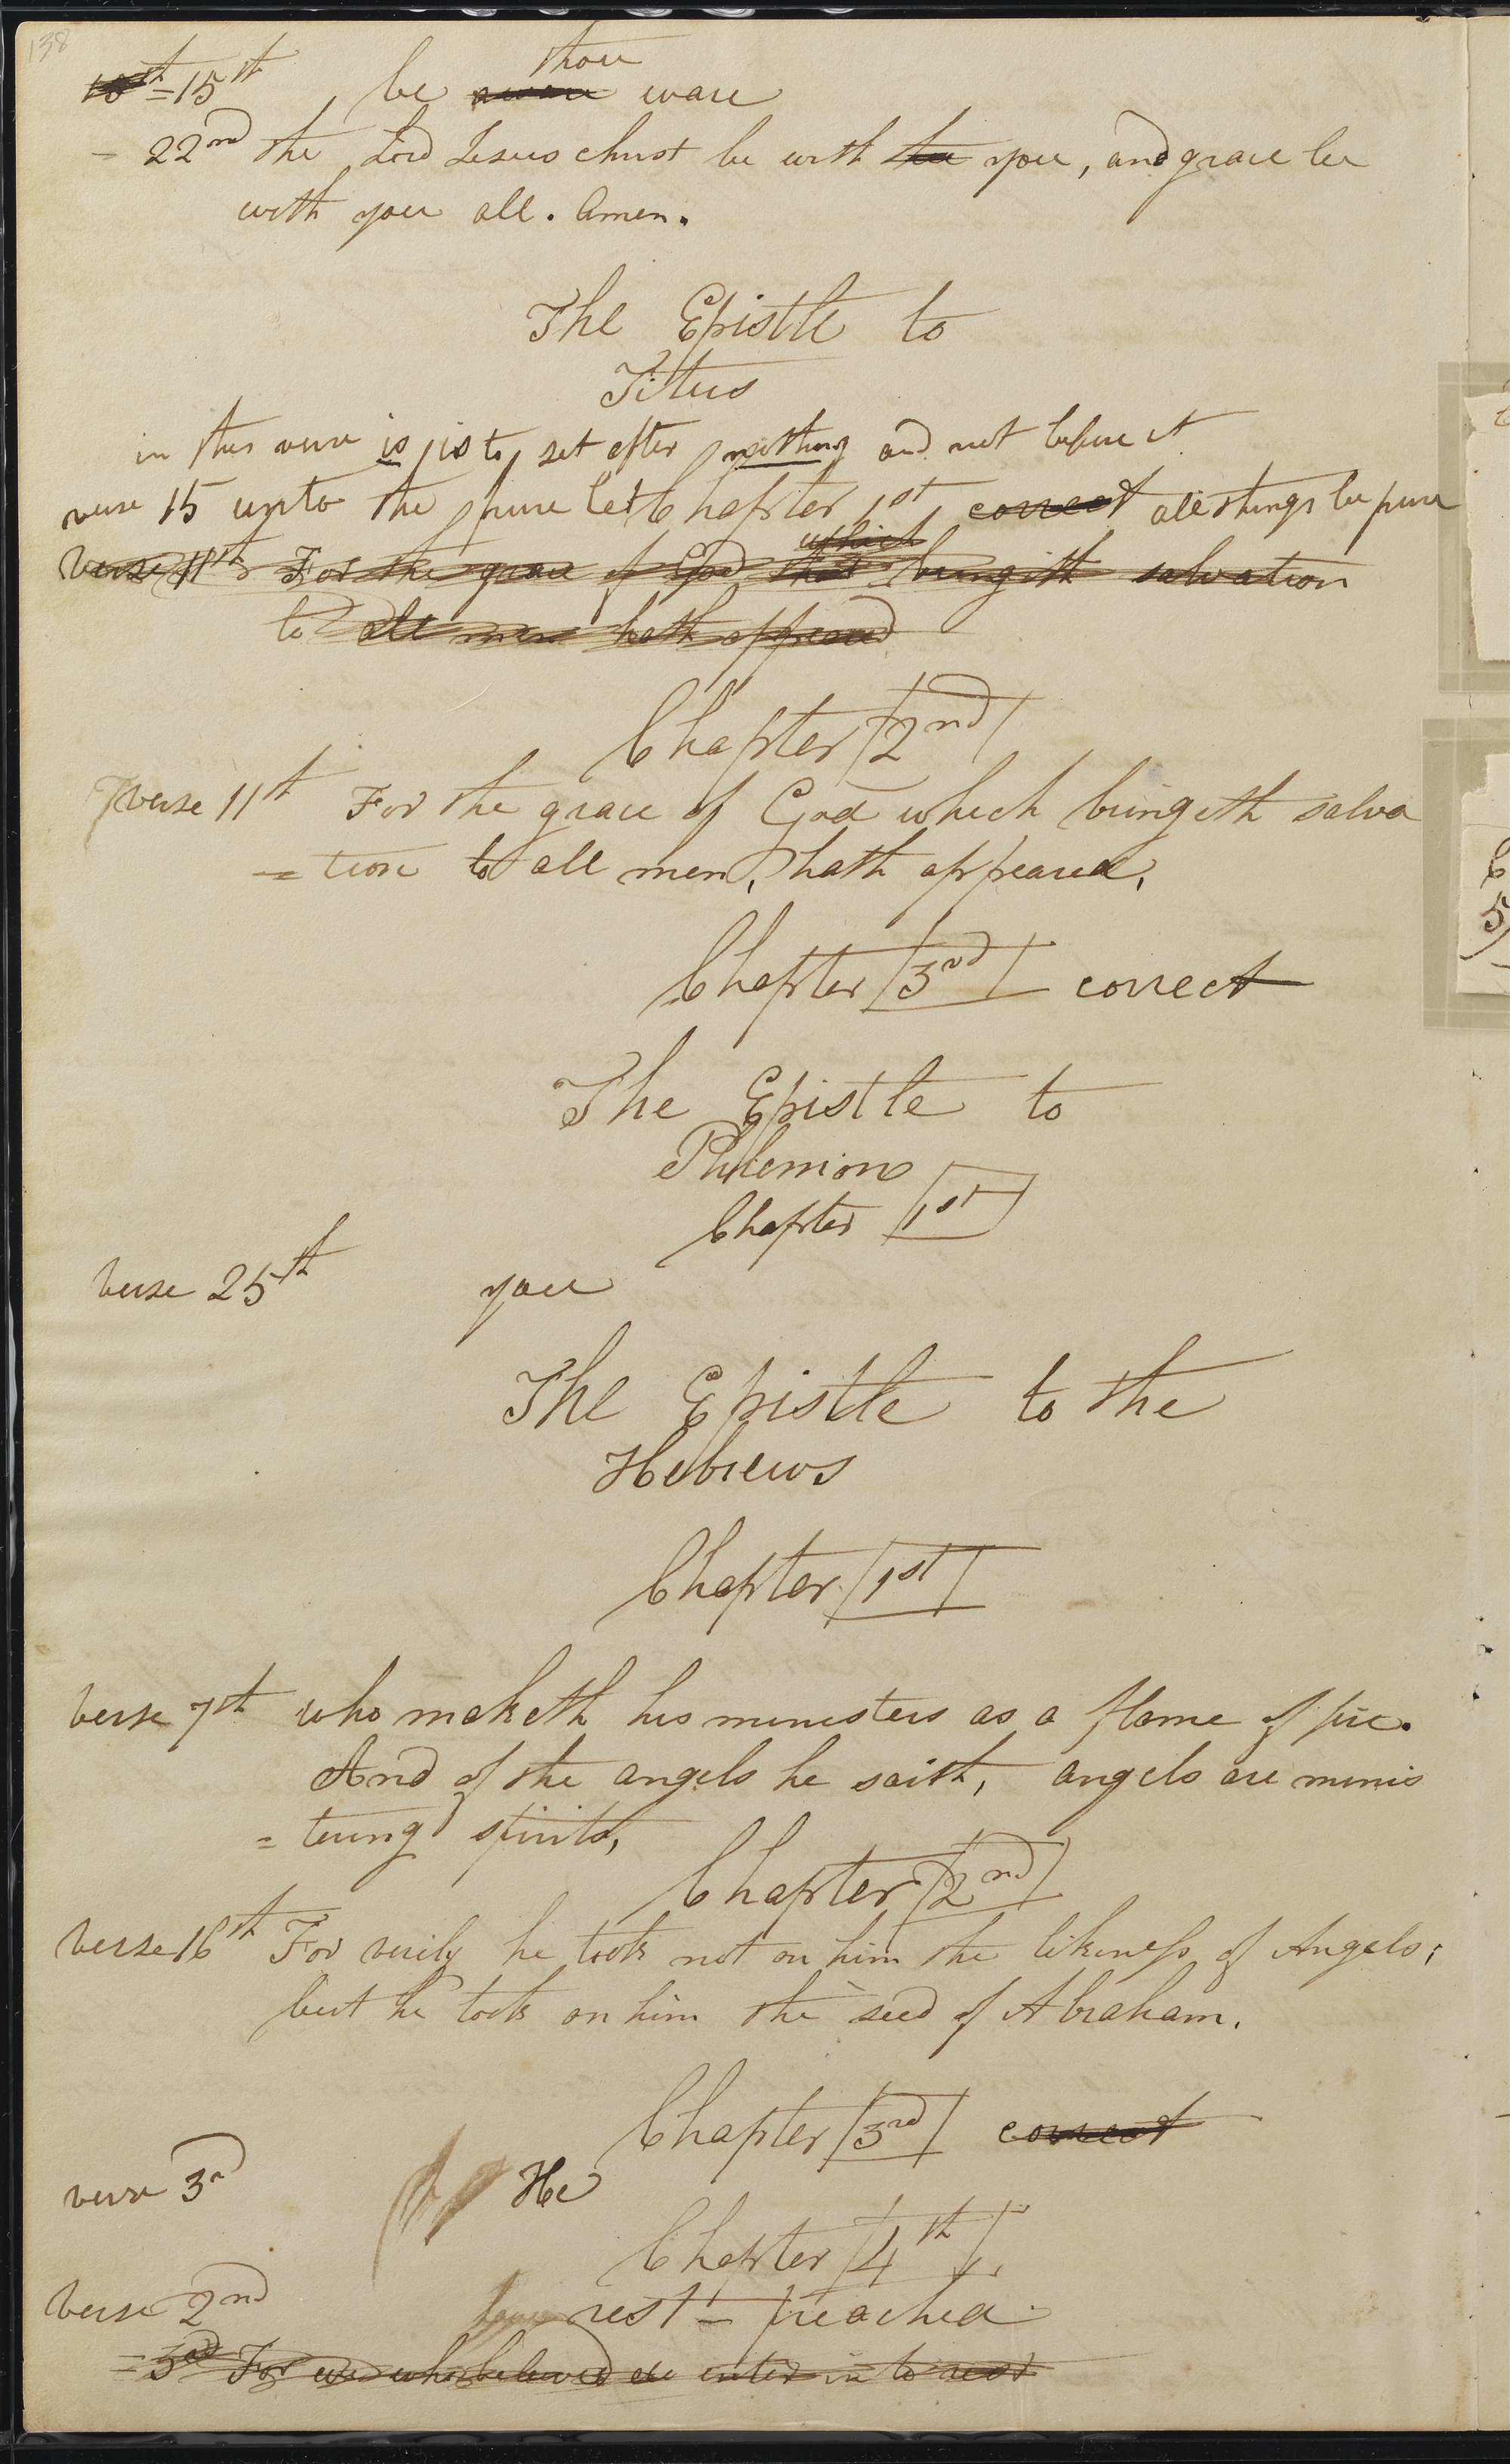 138
thou
10th = 15th be aware ware
= 22nd the Lord Jesus christ be with the you, and grace be
with you all. Amen.
The Epistle to
Titus
in this verse is is to set after nothing and not before it
verse 15 unto the pure let Chapter 1st correct all things be pure
which
Verse 11th For the grace of God that bringeth salvation
to all men hath appeared
Chapter 2nd
verse 11th For the grace of God which bringeth salva
= tion to all men, hath appeared,
Chapter 3rd correct
The Epistle to
Philemion
Chapter 1st
verse 25th you
The Epistle to the
Hebrews
Chapter 1st
verse 7th who maketh his ministers as a flame of fire.
And of the angels he saith, angels are minis
= tering spirits,
Chapter 2nd
verse 16th For verily he took not on him the likeness of Angels;
but he took on him the seed of Abraham.
Chapter 3rd correct
verse 3d He
Chapter 4th
verse 2nd rest = preached
= 3rd For we who believed do enter in to rest